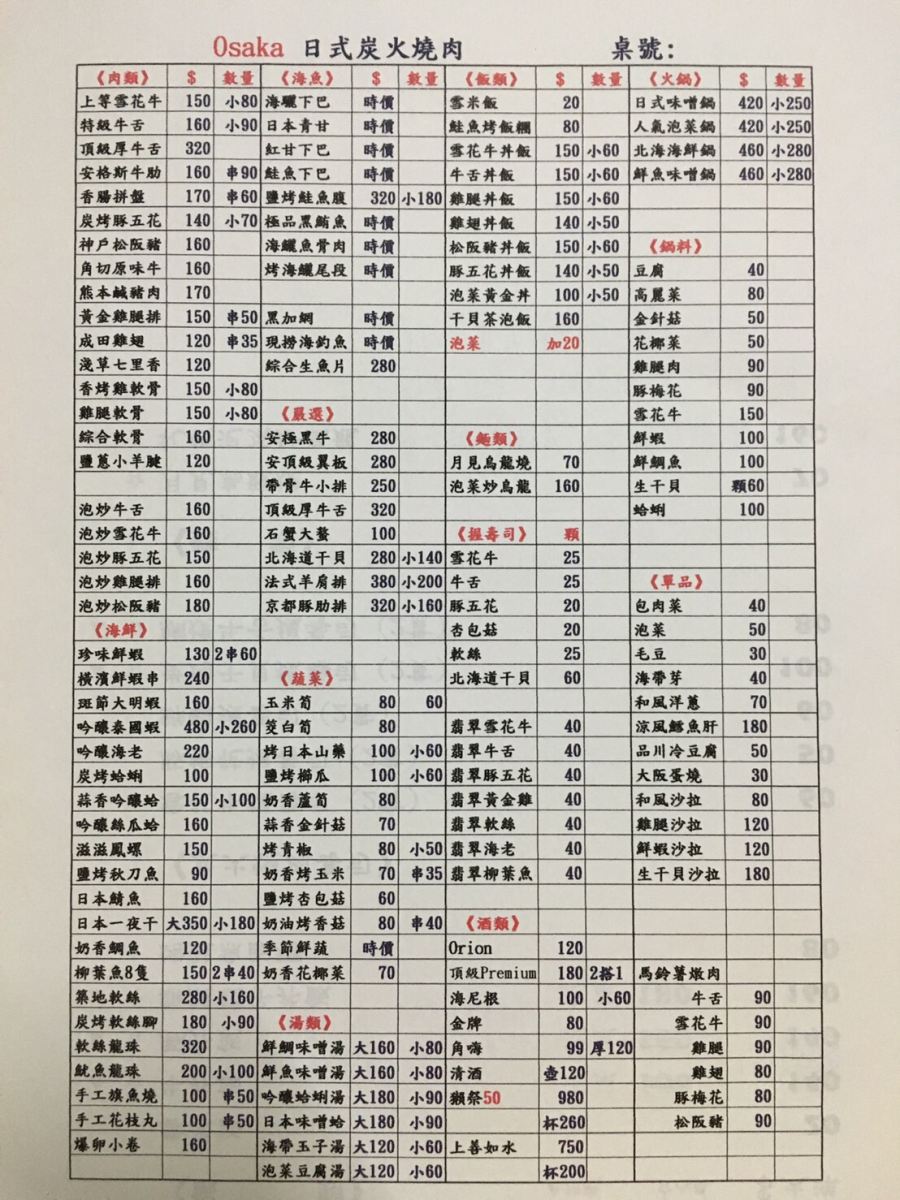 Osaka 日式炭火燒肉 桌號:
《肉類》 $ 數量 《海魚》 $ 數量 《飯類》 $ 數量 《火鍋》 $ 數量
上等雪花牛 150 小80 海鱺下巴 時價 雪米飯 20 日式味噌鍋 420 小250
特級牛舌 160 小90 日本青甘 時價 鮭魚烤飯糰 80 人氣泡菜鍋 420 小250
頂級厚牛舌 320 紅甘下巴 時價 雪花牛丼飯 150 小60 北海海鮮鍋 460 小280
安格斯牛肋 160 串90 鮭魚下巴 時價 牛舌丼飯 150 小60 鮮魚味噌鍋 460 小280
香腸拼盤 170 串60 鹽烤鮭魚腹 320 小180 雞腿丼飯 150 小60
炭烤豚五花 140 小70 極品黑鮪魚 時價 雞翅丼飯 140 小50
神戶松阪豬 160 海鱺魚骨肉 時價 松阪豬丼飯 150 小60 《鍋料》
角切原味牛 160 烤海鱺尾段 時價 豚五花丼飯 140 小50 豆腐 40
熊本鹹豬肉 170 泡菜黃金丼 100 小50 高麗菜 80
黃金雞腿排 150 串50 黑加網 時價 干貝茶泡飯 160 金針菇 50
成田雞翅 120 串35 現撈海釣魚 時價 泡菜 加20 花椰菜 50
淺草七里香 120 綜合生魚片 280 雞腿肉 90
香烤雞軟骨 150 小80 豚梅花 90
雞腿軟骨 150 小80 《嚴選》 雪花牛 150
綜合軟骨 160 安極黑牛 280 《麵類》 鮮蝦 100
鹽蔥小羊腱 120 安頂級翼板 280 月見烏龍燒 70 鮮鯛魚 100
帶骨牛小排 250 泡菜炒烏龍 160 生干貝 顆60
泡炒牛舌 160 頂級厚牛舌 320 蛤蜊 100
泡炒雪花牛 160 石蟹大螯 100 《握壽司》 顆
泡炒豚五花 150 北海道干貝 280 小140 雪花牛 25
泡炒雞腿排 160 法式羊肩排 380 小200 牛舌 25 《單品》
泡炒松阪豬 180 京都豚肋排 320 小160 豚五花 20 包肉菜 40
《海鮮》 杏包菇 20 泡菜 50
珍味鮮蝦 130 2串60 軟絲 25 毛豆 30
橫濱鮮蝦串 240 《蔬菜》 北海道干貝 60 海帶芽 40
斑節大明蝦 160 玉米筍 80 60 和風洋蔥 70
吟釀泰國蝦 480 小260 筊白筍 80 翡翠雪花牛 40 涼風鱈魚肝 180
吟釀海老 220 烤日本山藥 100 小60 翡翠牛舌 40 品川冷豆腐 50
炭烤蛤蜊 100 鹽烤櫛瓜 100 小60 翡翠豚五花 40 大阪蛋燒 30
蒜香吟釀蛤 150 小100 奶香蘆筍 80 翡翠黃金雞 40 和風沙拉 80
吟釀絲瓜蛤 160 蒜香金針菇 70 翡翠軟絲 40 雞腿沙拉 120
滋滋鳳螺 150 烤青椒 80 小50 翡翠海老 40 鮮蝦沙拉 120
鹽烤秋刀魚 90 奶香烤玉米 70 串35 翡翠柳葉魚 40 生干貝沙拉 180
日本鯖魚 160 鹽烤杏包菇 60
日本一夜干 大350 小180 奶油烤香菇 80 串40 《酒類》
奶香鯛魚 120 季節鮮蔬 時價 Orion 120
柳葉魚8隻 150 2串40 奶香花椰菜 70 頂級Premium 180 2搭1 馬鈴薯燉肉
築地軟絲 280 小160 海尼根 100 小60 牛舌 90
炭烤軟絲腳 180 小90 《湯類》 金牌 80 雪花牛 90
軟絲龍珠 320 鮮鯛味噌湯 大160 小80 角嗨 99 厚120 雞腿 90
魷魚龍珠 200 小100 鮮魚味噌湯 大160 小80 清酒 壺120 雞翅 80
手工旗魚燒 100 串50 吟釀蛤蜊湯 大180 小90 獺祭50 980 豚梅花 80
手工花枝丸 100 串50 日本味噌蛤 大180 小90 杯260 松阪豬 90
爆卵小卷 160 海帶玉子湯 大120 小60 上善如水 750
泡菜豆腐湯 大120 小60 杯200